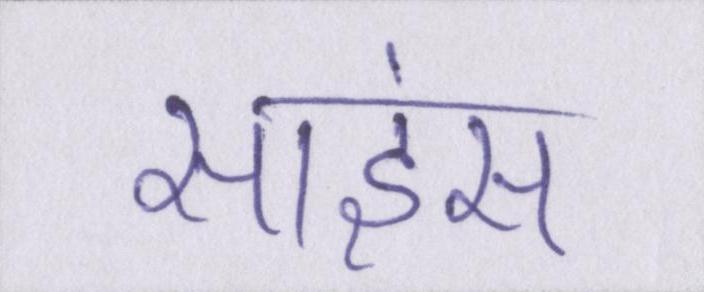 साइंस